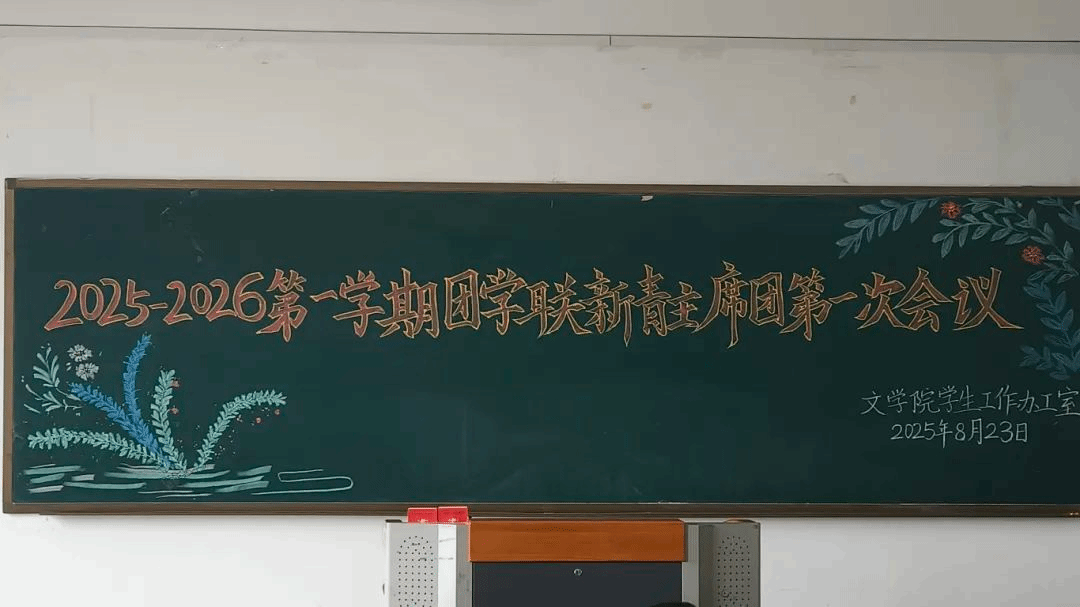 2025-2026第一学期团学联新青主席团第一次会议
文学院学生工作办工室
2025年8月23日